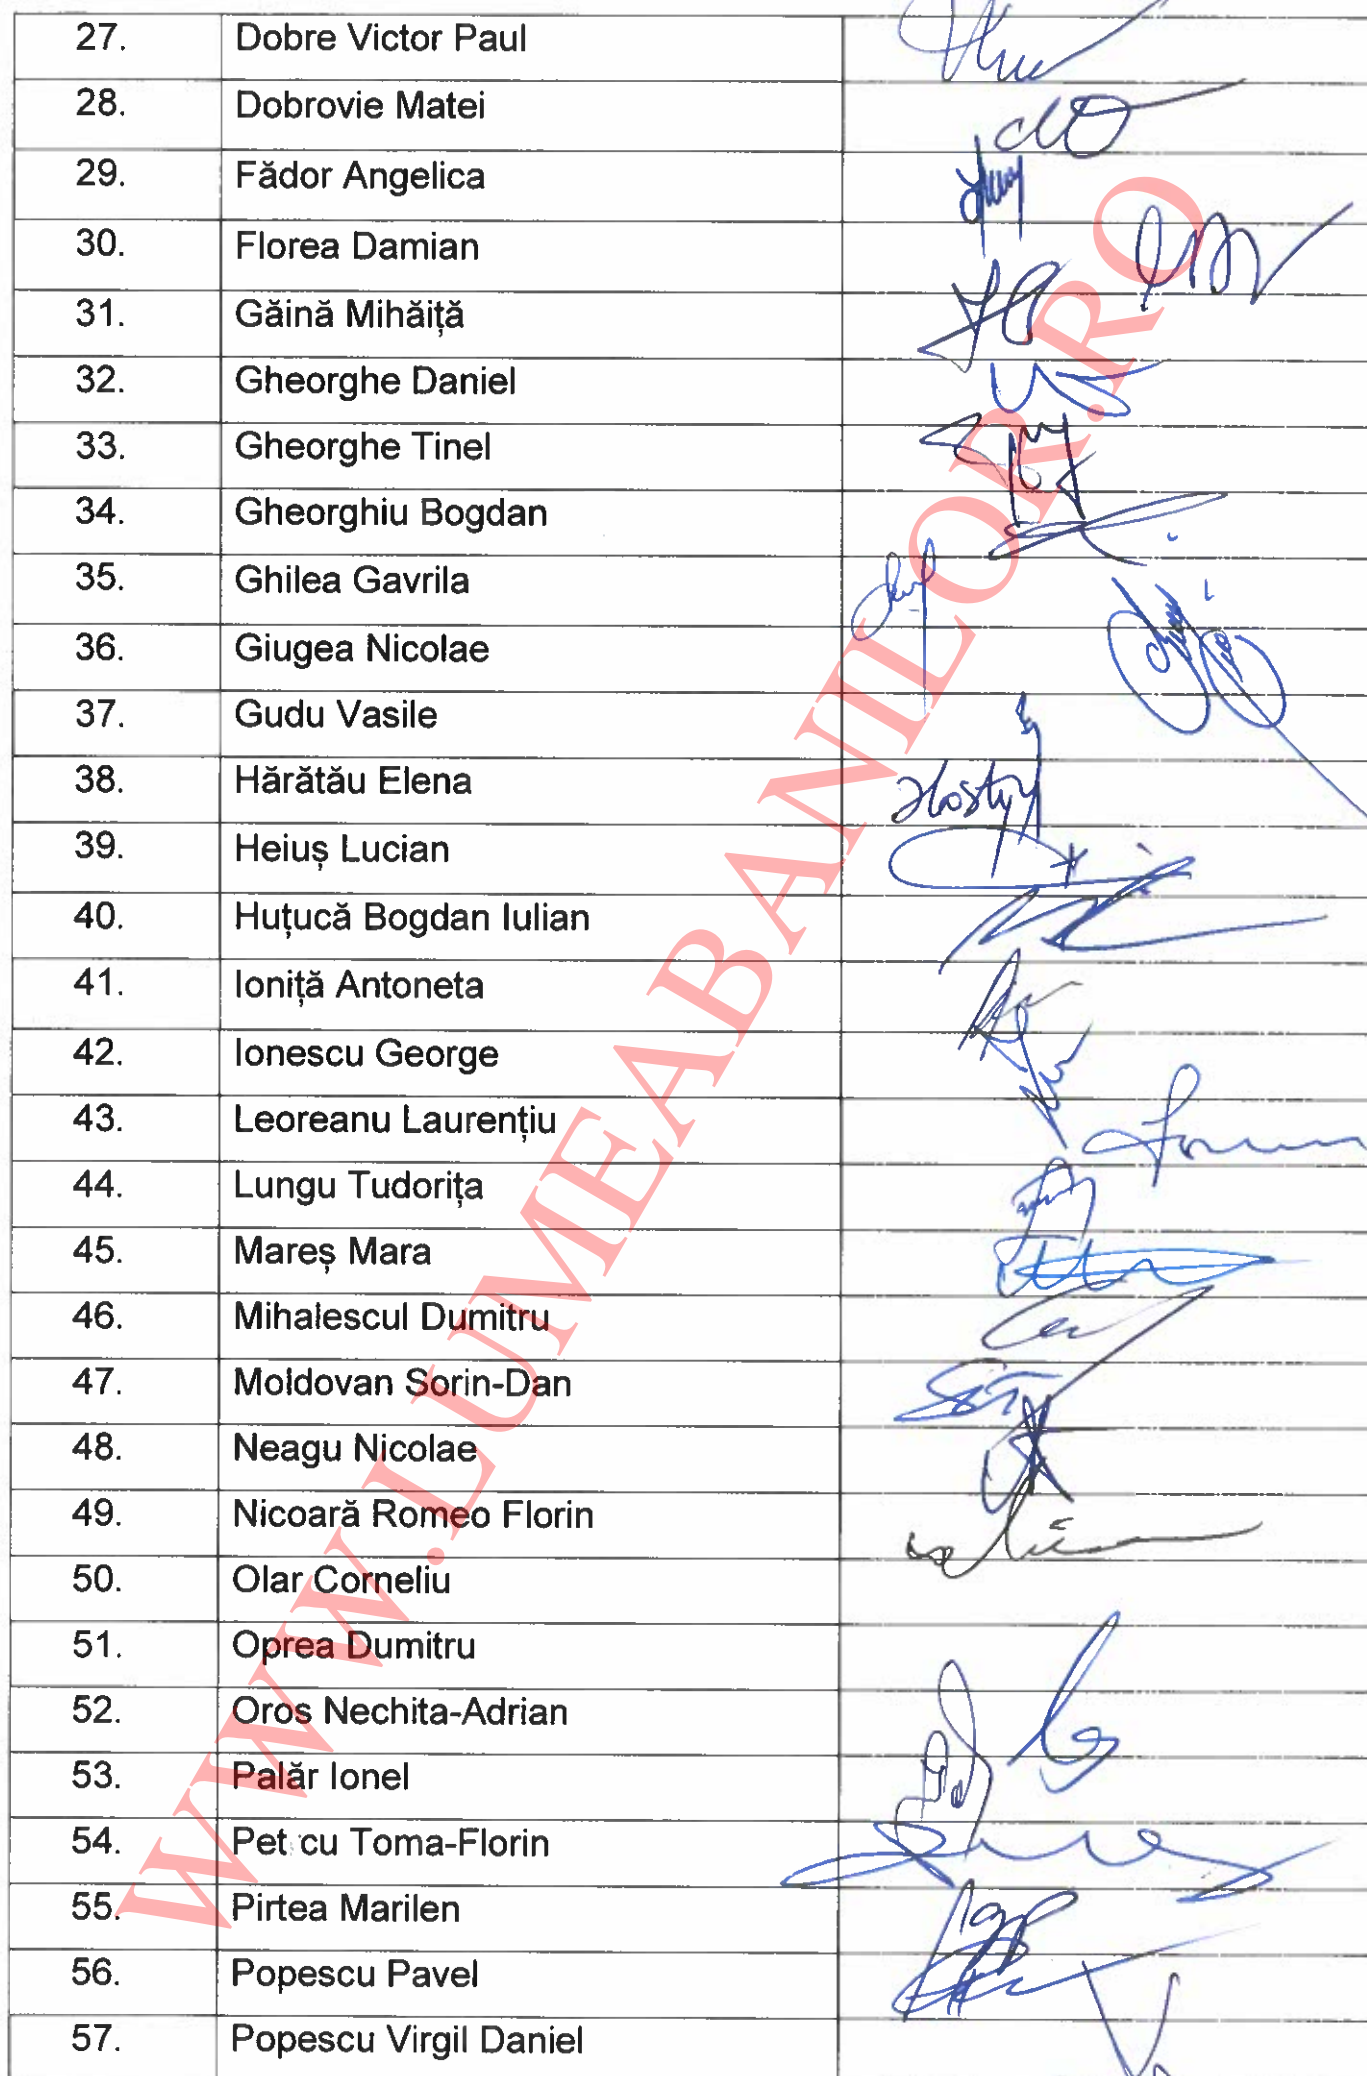 27. Dobre Victor Paul
28. Dobrovie Matei
29. Fădor Angelica
30. Florea Damian
31. Găină Mihăiță
32. Gheorghe Daniel
33. Gheorghe Tinel
34. Gheorghiu Bogdan
35. Ghilea Gavrila
36. Giugea Nicolae
37. Gudu Vasile
38. Hărătău Elena
39. Heiuș Lucian
40. Huțucă Bogdan Iulian
41. Ioniță Antoneta
42. Ionescu George
43. Leoreanu Laurențiu
44. Lungu Tudorița
45. Mareș Mara
46. Mihalescul Dumitru
47. Moldovan Sorin-Dan
48. Neagu Nicolae
49. Nicoară Romeo Florin
50. Olar Corneliu
51. Oprea Dumitru
52. Oros Nechita-Adrian
53. Palăr Ionel
54. Pet cu Toma-Florin
55. Pirtea Marilen
56. Popescu Pavel
57. Popescu Virgil Daniel
WWW.LUMEABANILOR.RO